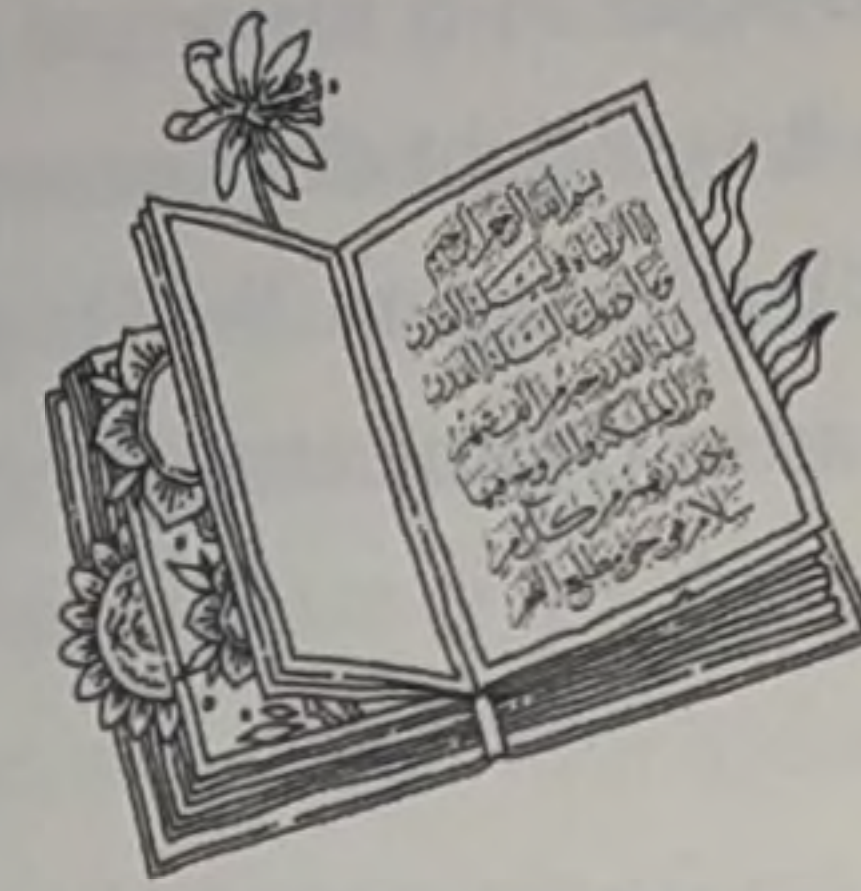 بسم الله الرحمن الرحيم
إنا أنزلناه في ليلة القدر
وما أدراك ما ليلة القدر
ليلة القدر خير من ألف شهر
تنزل الملائكة والروح فيها
بإذن ربهم من كل أمر
سلام هي حتى مطلع الفجر